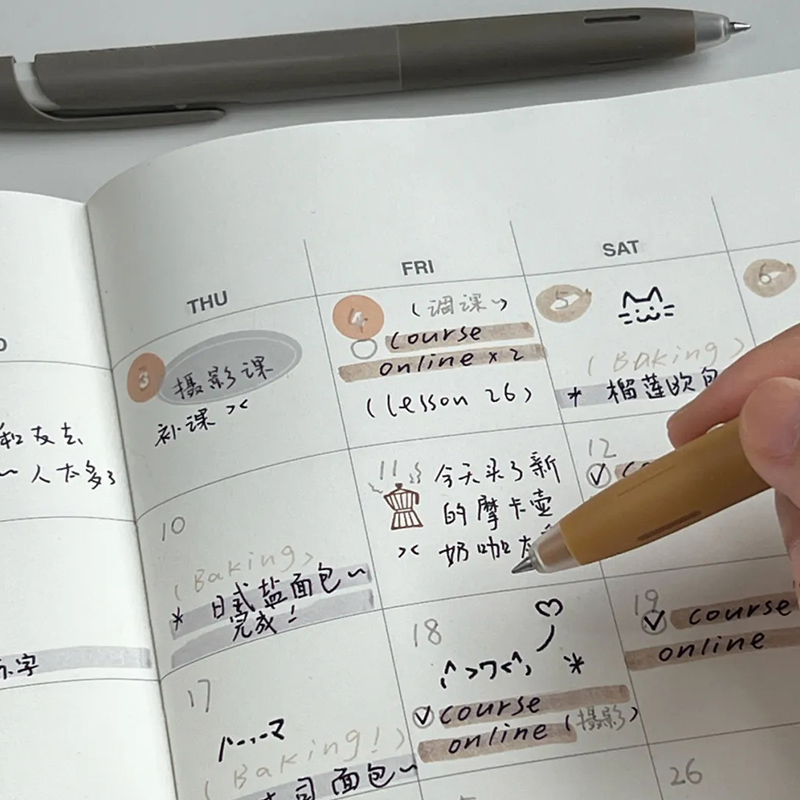 THU
FRI
SAT
3
摄影课
补课 ><
4
(调课~)
course
online × 2
(lesson 26)
5
(BAKING)
* 榴莲欧包
6
和友去
~人太多了
10
(Baking)
* 日式盐面包~
完成!
11
今天买了新
的摩卡壶
>< 奶咖
12
17
(Baking!)
面包~
18
course
online (摄影)
19
course
online
26